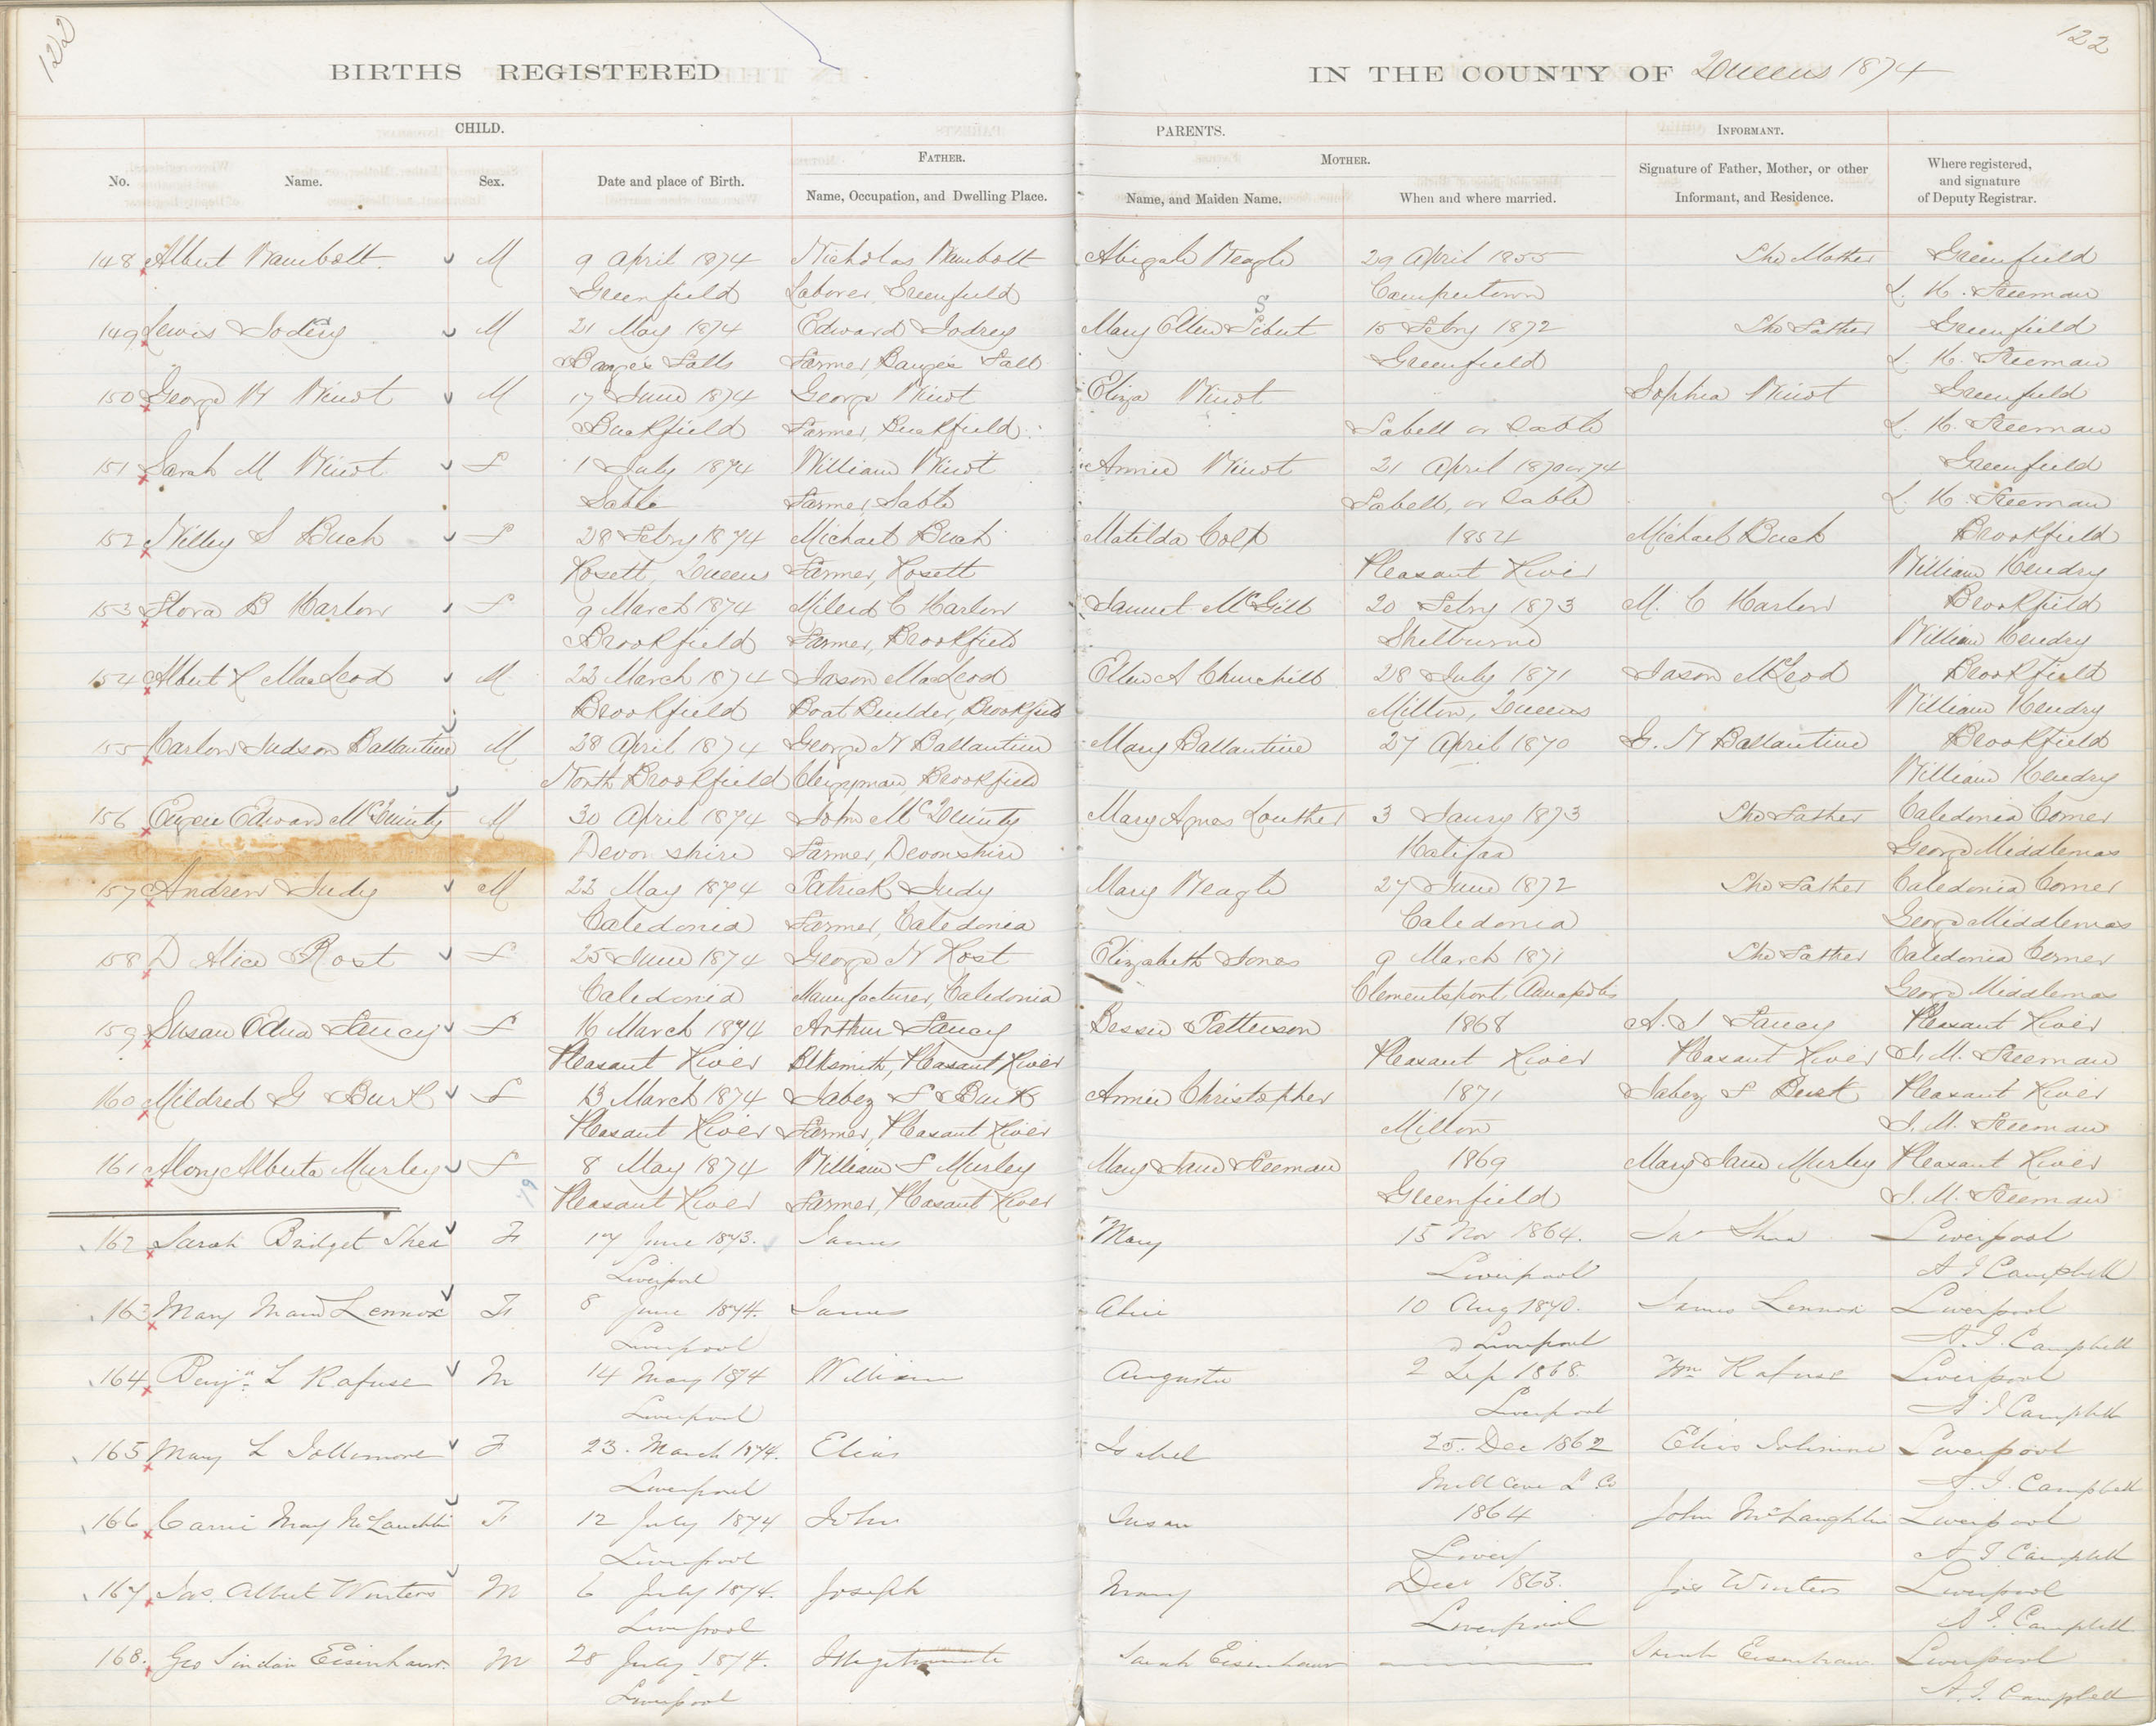 122
122
BIRTHS REGISTERED IN THE COUNTY OF Queens 1874
CHILD. PARENTS. INFORMANT.
FATHER. MOTHER.
No. Name. Sex. Date and place of Birth. Name, Occupation, and Dwelling Place. Name, and Maiden Name. When and where married. Signature of Father, Mother, or other Informant, and Residence. Where registered, and signature of Deputy Registrar.
148 Albert Wambolt M 9 April 1874 Nicholas Wambolt Abigale Neagle 29 April 1855 The Mother Greenfield
Greenfield Laborer, Greenfield Camperdown L. H. Freeman
149 Lewis M 21 May 1874 Edward Jodrey Mary Ellen 15 Febry 1872 The Father Greenfield
Bangs Falls Farmer, Bangs Falls Greenfield L. H. Freeman
150 George W Winot M 17 June 1874 George Winot Eliza Winot Sophia Winot Greenfield
Buckfield Farmer, Buckfield Labell or Cable L. H. Freeman
151 Sarah M Winot F 1 July 1874 William Winot Annie Winot 21 April 1870 or 74 Greenfield
Sable Farmer, Sable Labell, or Cable L. H. Freeman
152 S Buch F 28 Febry 1874 Michael Buch Matilda Colp 1854 Michael Buch Brookfield
Rosett, Queens Farmer, Rosett Pleasant River William Hendry
153 Flora B Harlow F 9 March 1874 C Harlow McGill 20 Febry 1873 M. C Harlow Brookfield
Brookfield Farmer, Brookfield Shelburne William Hendry
154 Albert R MacLeod M 22 March 1874 Jason MacLeod Ellen A Churchill 28 July 1871 Jason McLeod Brookfield
Brookfield Boat Builder, Brookfield Milton, Queens William Hendry
155 Harlow Judson Ballantine M 28 April 1874 George N Ballantine Mary Ballantine 27 April 1870 G. N Ballantine Brookfield
North Brookfield Clergyman, Brookfield William Hendry
156 Eugene Edward McGuinty M 30 April 1874 John McGuinty Mary Agnes Louther 3 Janry 1873 The Father Caledonia Corner
Devonshire Farmer, Devonshire Halifax George Middlemas
157 Andrew Judy M 22 May 1874 Patrick Judy Mary Neagle 27 June 1872 The Father Caledonia Corner
Caledonia Farmer, Caledonia Caledonia George Middlemas
158 D Alice Rost F 25 June 1874 George N Rost Elizabeth Jones 9 March 1871 The Father Caledonia Corner
Caledonia Manufacturer, Caledonia Clementsport, Annapolis George Middlemas
159 Susan Edna Fancy F 16 March 1874 Arthur Fancy Bessie Patterson 1868 A. J Fancy Pleasant River
Pleasant River Blksmith, Pleasant River Pleasant River Pleasant River S. M. Freeman
160 Mildred G Burk F 13 March 1874 Jabez S Burk Annie Christopher 1871 Jabez S Burk Pleasant River
Pleasant River Farmer, Pleasant River Milton S. M. Freeman
161 Alberta Murley F 8 May 1874 William S Murley Mary Jane Freeman 1869 Mary Jane Murley Pleasant River
Pleasant River Farmer, Pleasant River Greenfield S. M. Freeman
162 Sarah Bridget Shea F 17 June 1873. James Mary 15 Nov 1864. Jas Shea Liverpool
Liverpool Liverpool A J Campbell
163 Mary Maud Lennox F 8 June 1874. James Alice 10 Aug 1870. James Lennox Liverpool
Liverpool Liverpool A. J. Campbell
164 Benjn L Rafuse M 14 May 1874 William Augusta 2 Sep 1868. Wm Rafuse Liverpool
Liverpool Liverpool A J Campbell
165 Mary L Jollimore F 23. March 1874. Elias Isabel 25. Dec 1862 Elias Liverpool
Liverpool Mill Cove L Co A. J. Campbell
166 Carrie May McLauchlin F 12 July 1874 John Susan 1864 John McLaughlin Liverpool
Liverpool Liverp A J Campbell
167 Jas. Albert Winters M 6 July 1874. Joseph Mary Decr 1863. Jos Winters Liverpool
Liverpool Liverpool A J. Campbell
168. Geo Sinclair Eisenhaur. M 28 July 1874. Illegitimate Sarah Eisenhaur Sarah Eisenhaur Liverpool
Liverpool A. J. Campbell